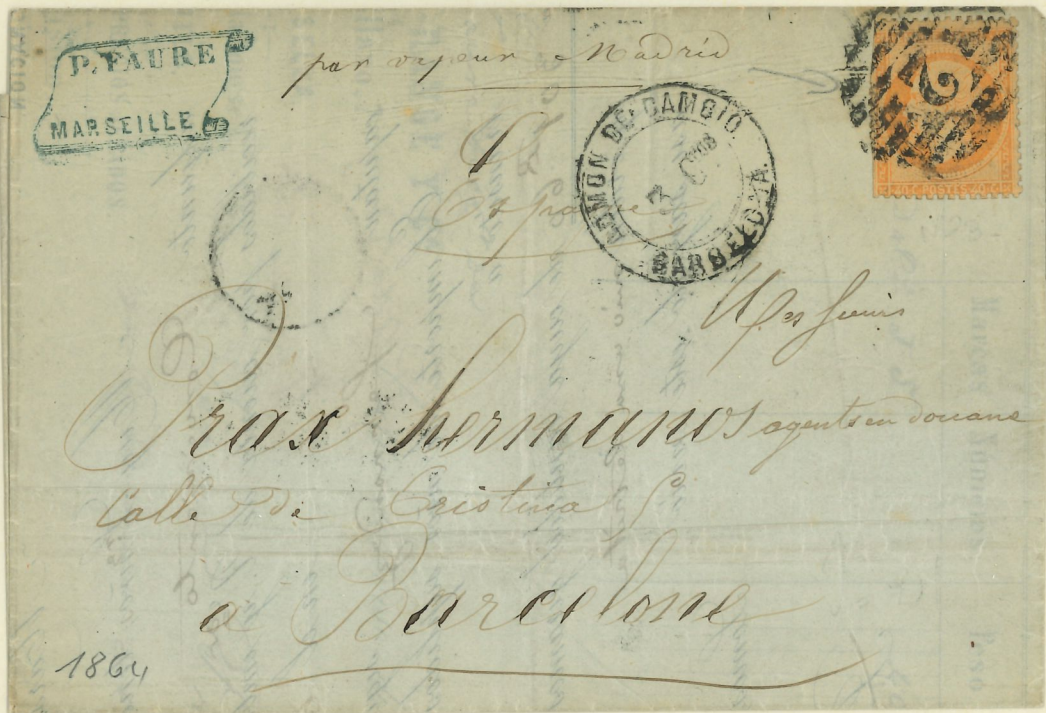 P. FAURE
MARSEILLE
par vapeur Madrid
Espagne
ADMON DE CAMBIO
BARCELONA
2
40 C. POSTES 40 C.
Messieurs
Prax hermanos agents en douane
Calle de Cristina
à Barcelone
1864